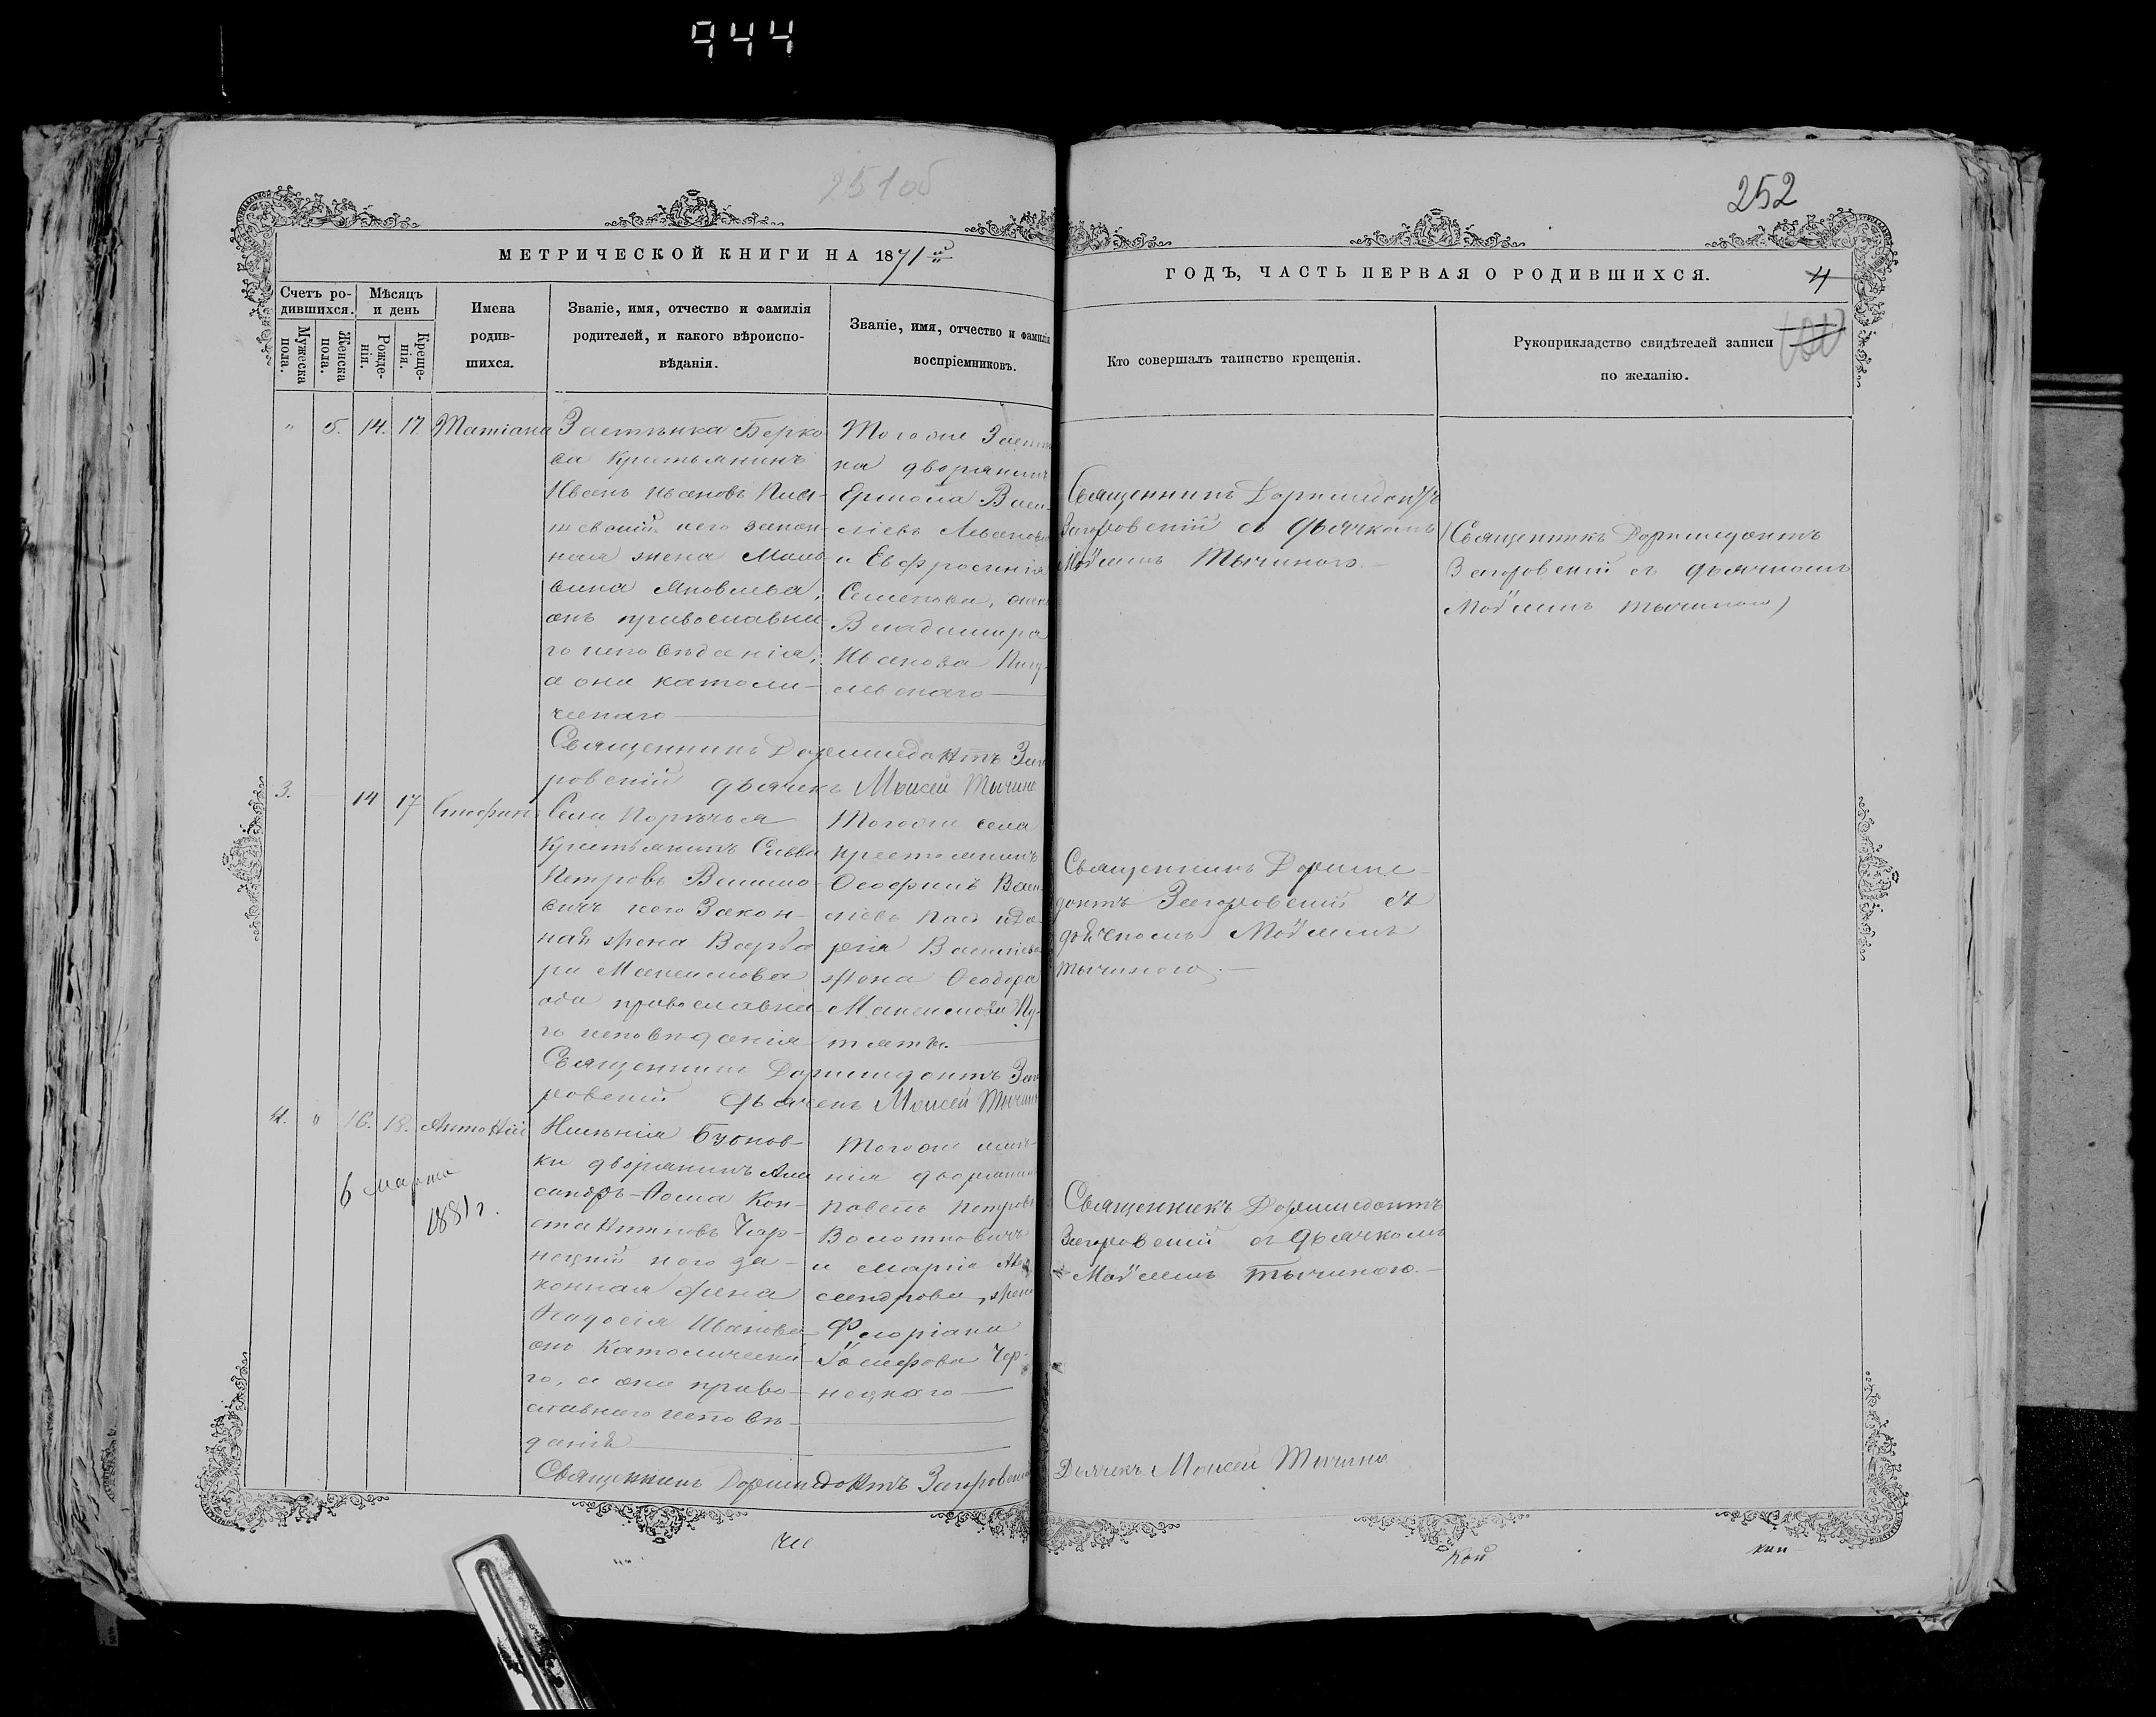 944
251об
252
МЕТРИЧЕСКОЙ КНИГИ НА 1871 й
ГОДЪ, ЧАСТЬ ПЕРВАЯ О РОДИВШИХСЯ.
4
Счетъ ро-
дившихся.
Мужеска
пола.
Женска
пола.
Мѣсяцъ
и день
Рожде-
нія.
Креще-
нія.
Имена
родив-
шихся.
Званіе, имя, отчество и фамилія
родителей, и какого вѣроиспо-
вѣданія.
Званіе, имя, отчество и фамилія
воспріемниковъ.
Кто совершалъ таинство крещенія.
Рукоприкладство свидѣтелей записи
по желанію.
" 5. 14. 17. Татіана
Застѣнка Берко
ва Крестьянинъ
Иванъ Ивановъ
его закон-
ная жена
вина Яковлева,
онъ православна-
го исповѣданія,
а она католи-
ческаго
Тогоже
ка дворянинъ
Ермола Васи-
ліевъ
и Евфросинія
Семенова, жена
Владимира
Иванова
Священникъ Доримедонтъ
Загоровскій съ дьячкомъ
Моѵсеемъ Тычиною.
(Священникъ Доримедонтъ
Загоровскій съ дьячкомъ
Моѵсеемъ Тычиною)
Священникъ Доримедонтъ Заго
ровскій дьячекъ Моисей Тычина
3. 14 17 Стефанъ
Села Порѣчья
Крестьянинъ Савва
Петровъ
вичъ и его Закон-
ная жена Варва
ра Максимова
оба православна
го исповѣданія
Тогоже села
крестьянинъ
Ѳеофилъ Васи
ліевъ
рія Василіева
жена Ѳеодора
Максимова Пу-
тяты.
Священникъ Дориме-
донтъ Загоровскій съ
дьячкомъ Моѵсеемъ
Тычиною.
Священникъ Доримедонтъ Заго
ровскій дьячекъ Моисей Тычина
4. " 16. 18. Антоній
6 марта
1881 г.
Имѣнія Буонов-
ки дворянинъ Алек
сандръ-Ѳома Кон-
стантиновъ Чар-
нецкій и его за-
конная жена
Ѳеодосія Иванова
онъ Католическа-
го, а она право-
славнаго исповѣ-
данія
Тогоже имѣ-
нія дворянинъ
Павелъ Петровъ
Волотковичъ
и Марія Алек
сандрова, жена
Флоріана
Іосифова Чер-
нецкаго
Священникъ Доримедонтъ
Загоровскій съ дьячкомъ
Моѵсеемъ Тычиною.
Священникъ Доримедонтъ Загоровскій
Дьячекъ Моисей Тычина